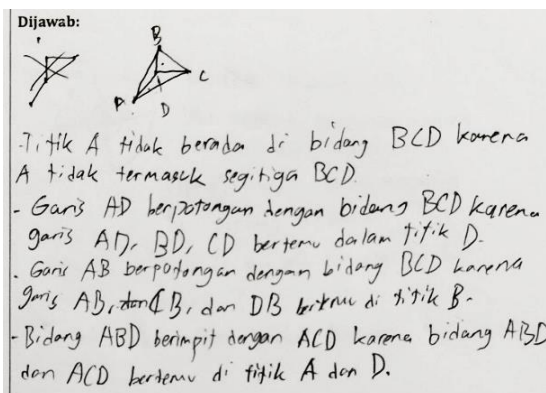 Dijawab:
B
C
A
D
- Titik A tidak berada di bidang BCD karena
A tidak termasuk segitiga BCD.
- Garis AD berpotongan dengan bidang BCD karena
garis AD, BD, CD bertemu dalam titik D.
- Garis AB berpotongan dengan bidang BCD karena
garis AB, CB, dan DB bertemu di titik B.
- Bidang ABD berimpit dengan ACD karena bidang ABD
dan ACD bertemu di titik A dan D.